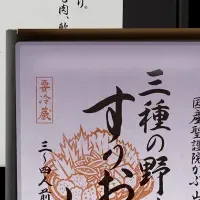 り。
も肉、軟
国産聖護院かぶ、山
三種の野
すりお
三〜四人前
要冷蔵